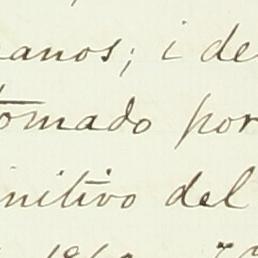 anos; i de
tomado por
initivo del